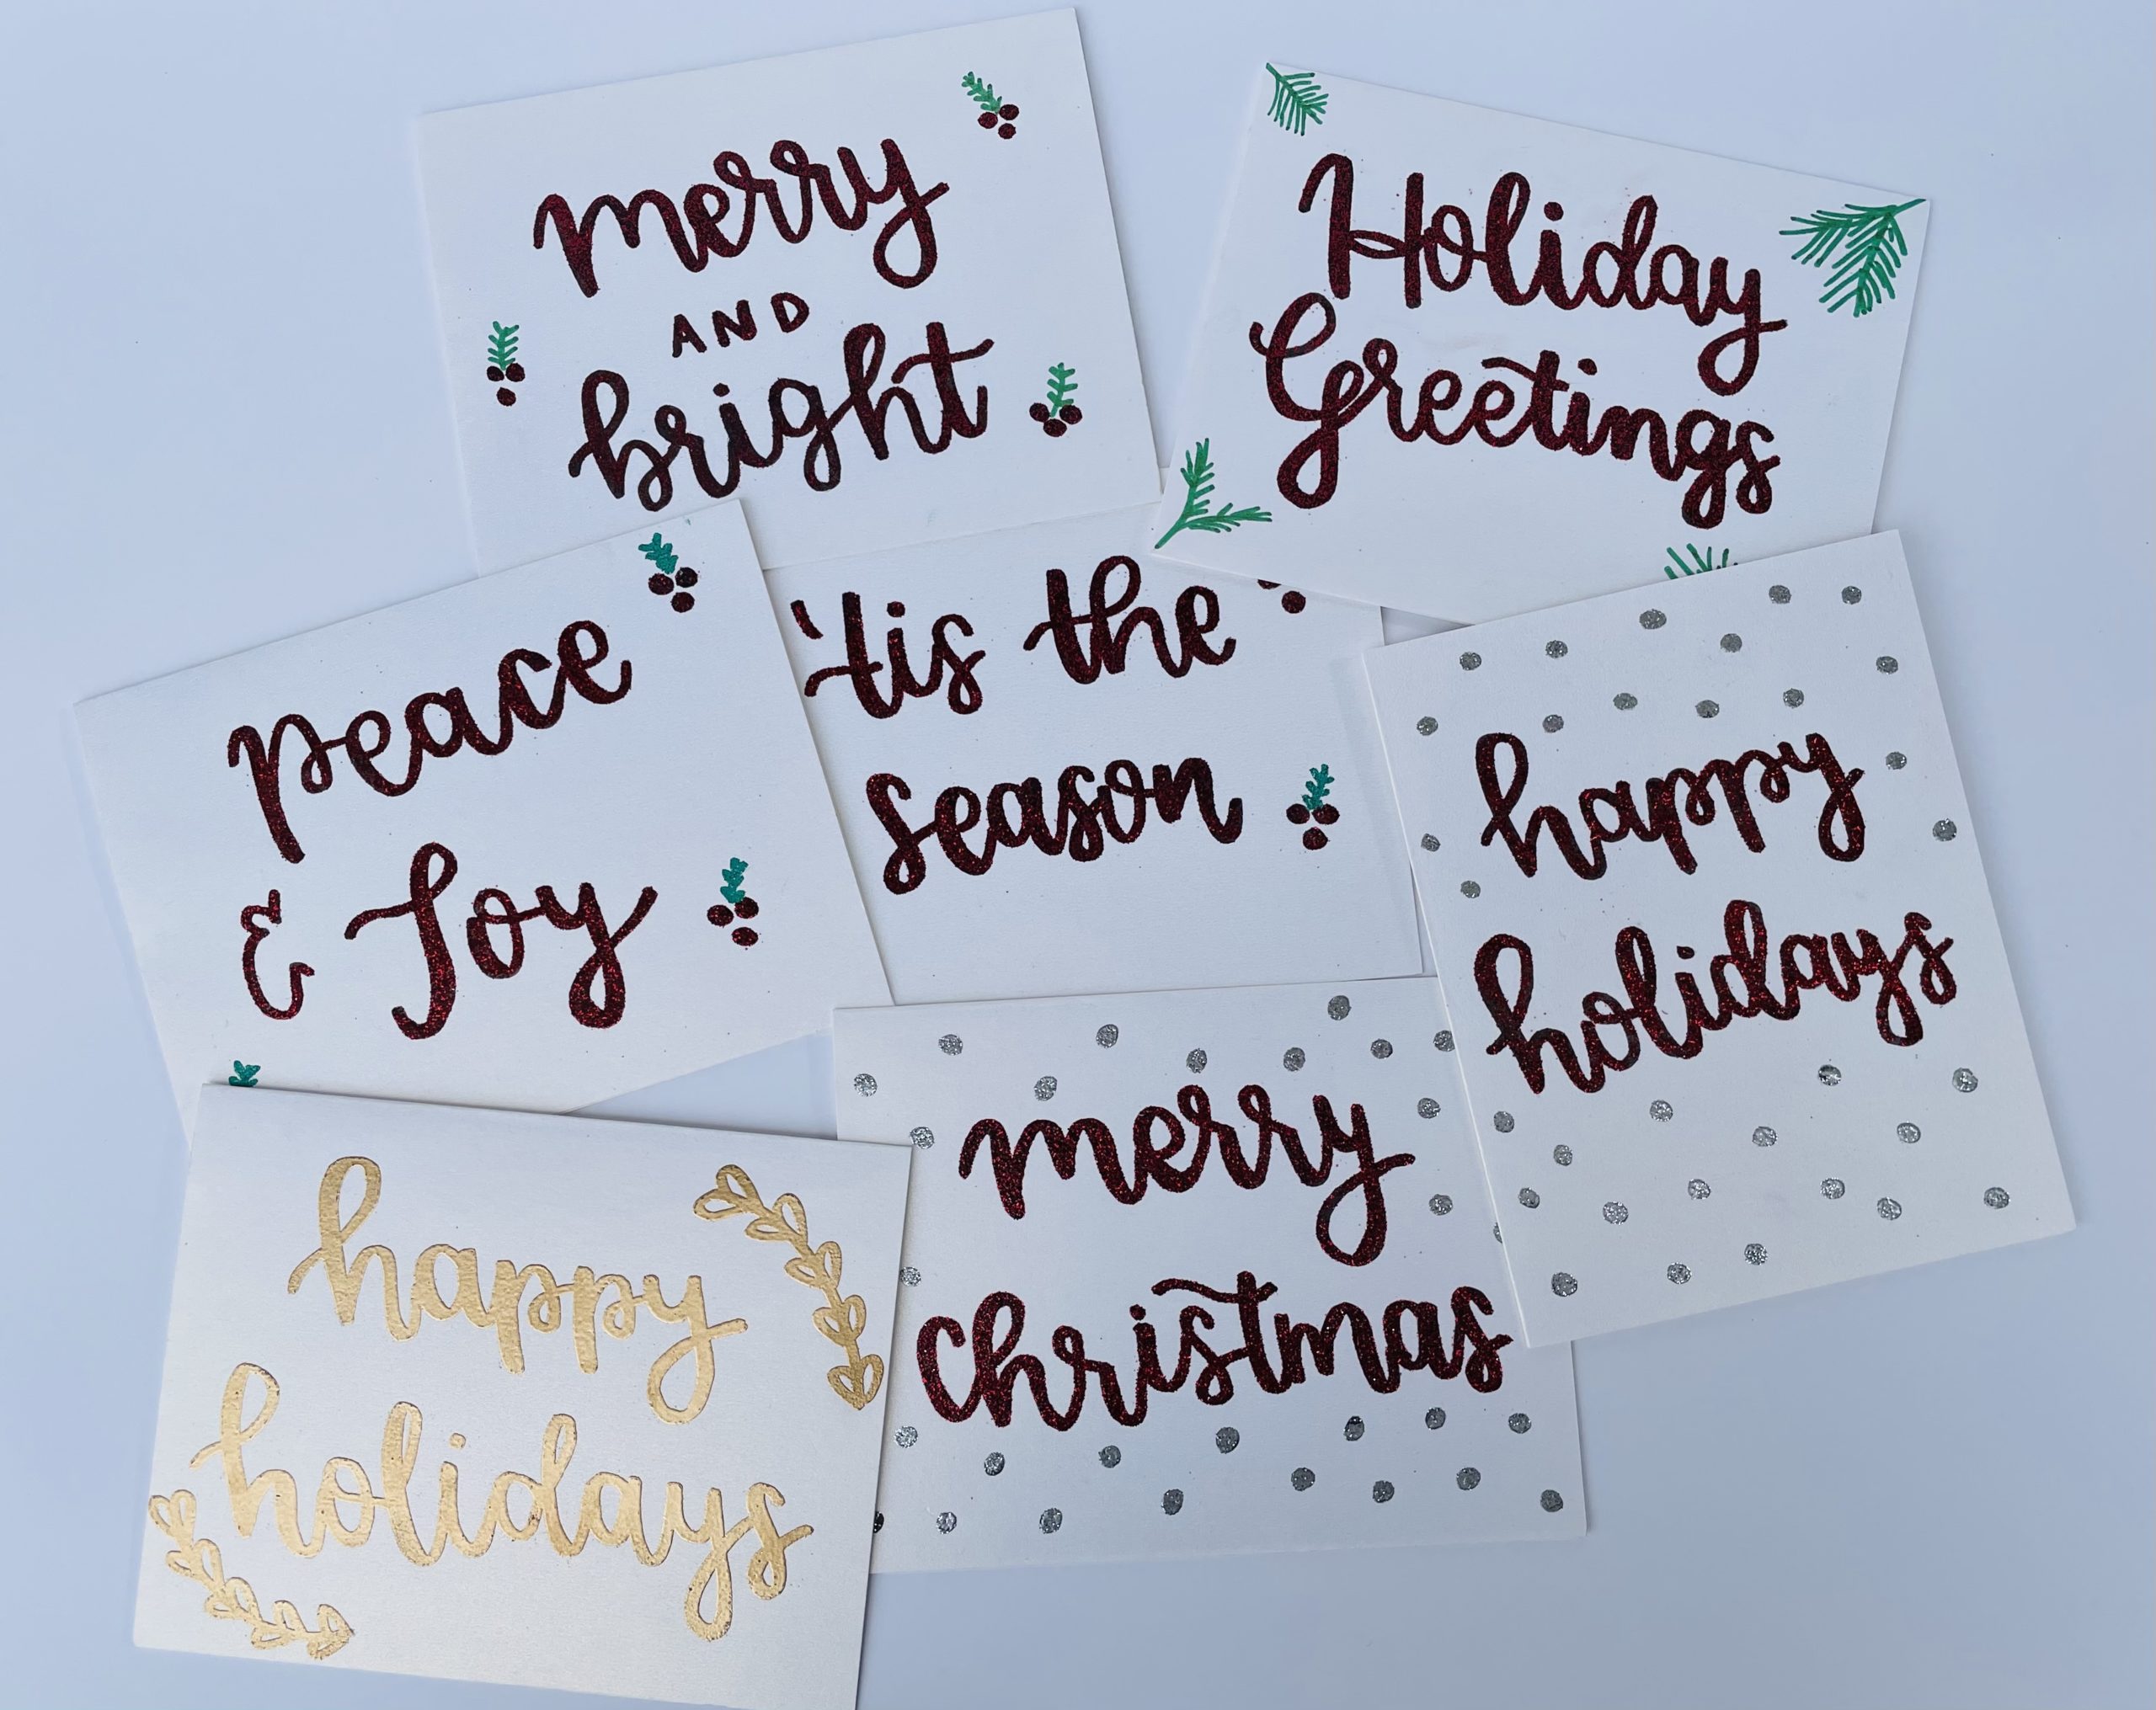 merry
AND
bright
Holiday
Greetings
peace
& Joy
'tis the
season
happy
holidays
happy
holidays
merry
christmas